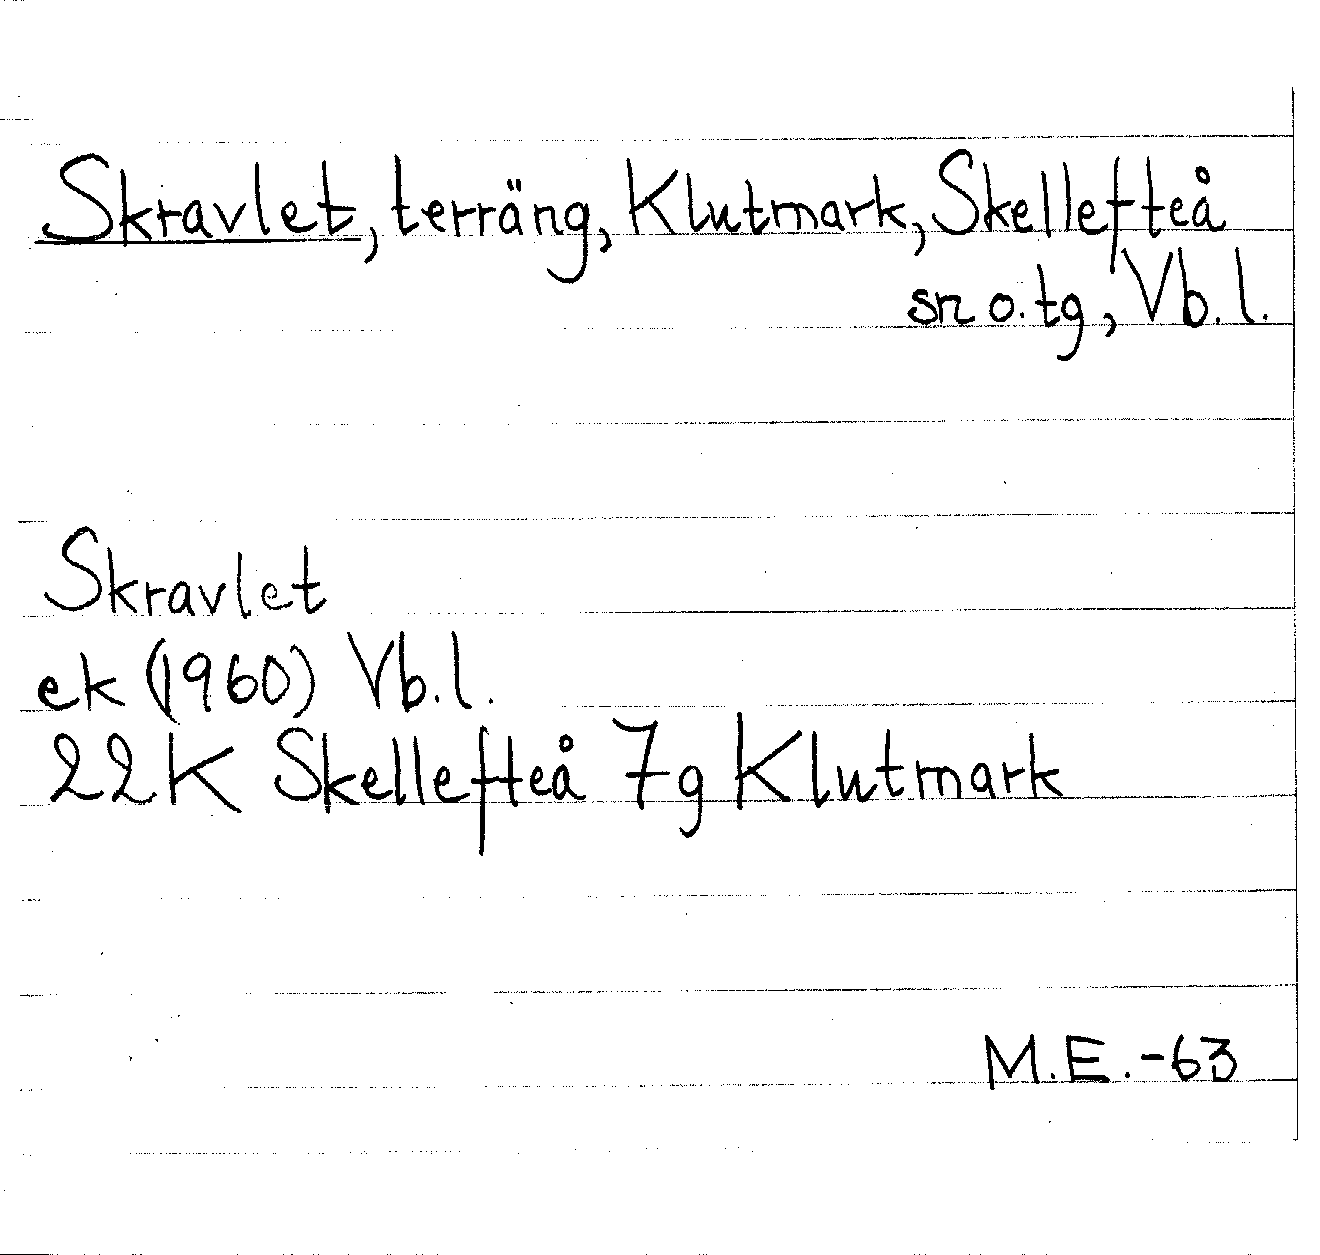 Skravlet, terräng, Klutmark, Skellefteå
sn o. tg, Vb. l.
Skravlet
ek (1960) Vb. l.
22K Skellefteå 7g Klutmark
M.E. -63